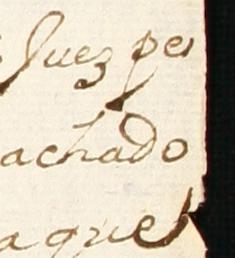 Juez pe
achado
aque